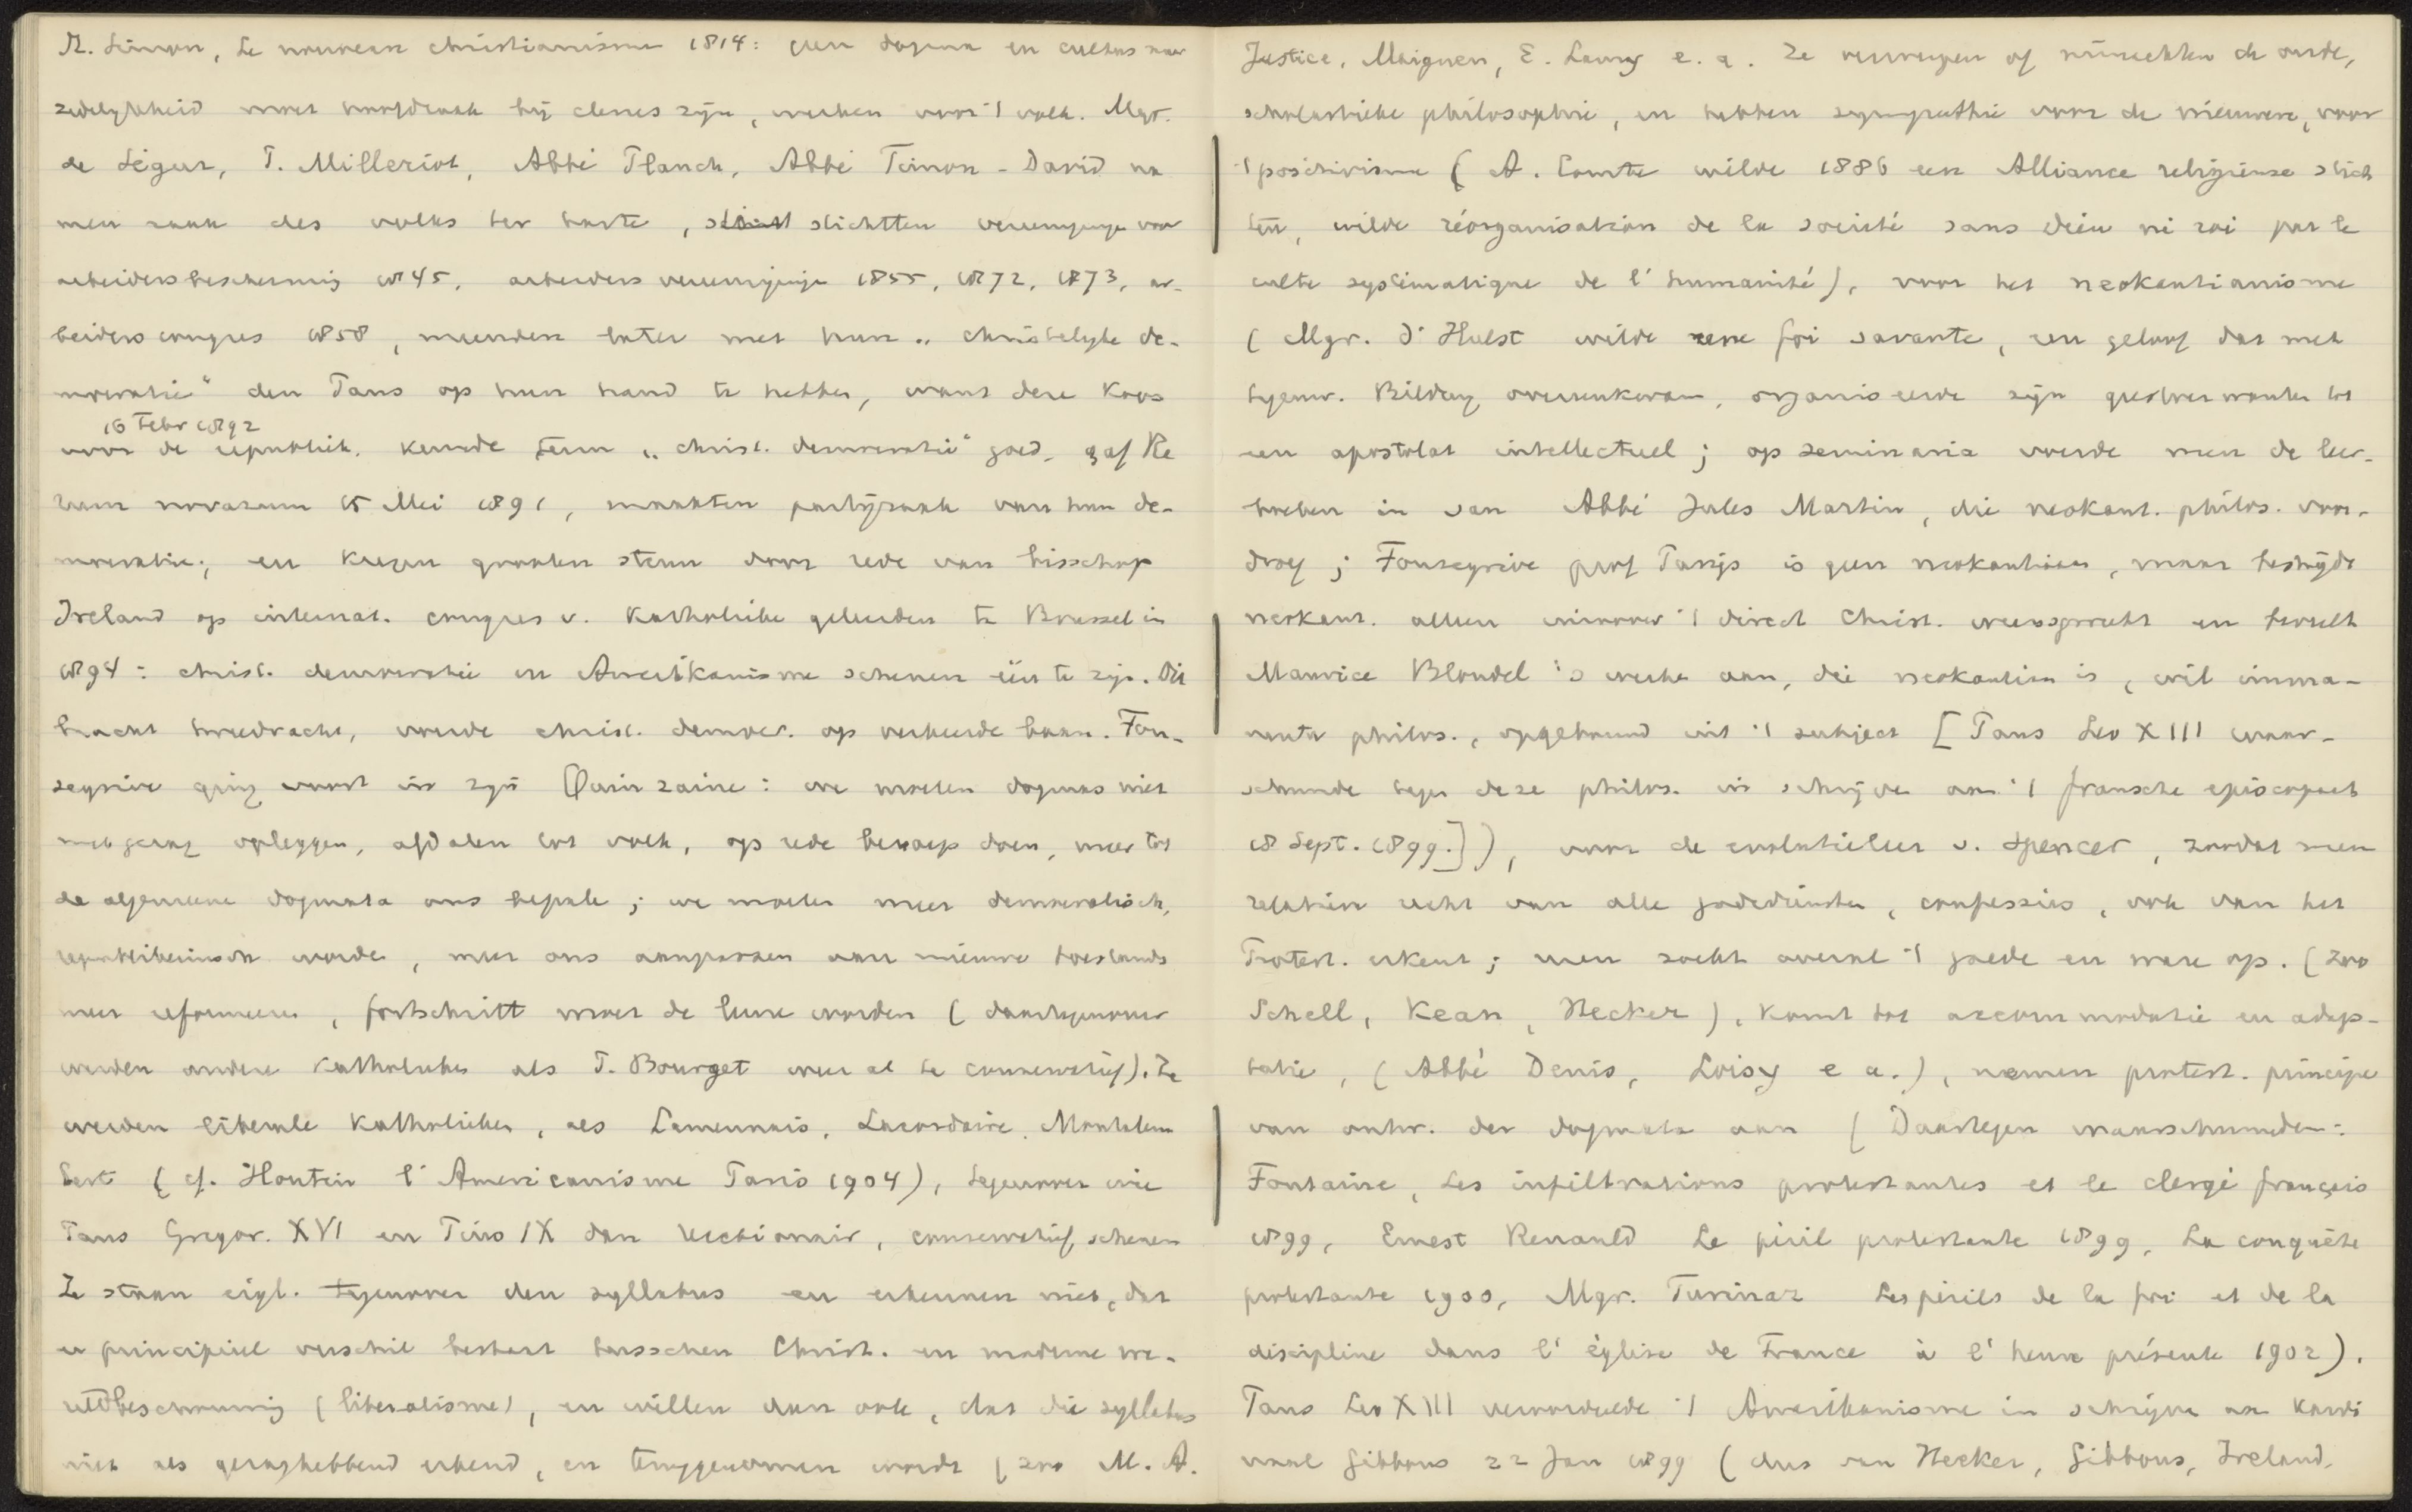 St. Simon, Le nouveau christianisme 1814: geen dogma en cultus maar
zedelykheid moet hoofdzaak bij clerus zijn, werken voor 't volk. Mgr.
de Ségur, P. Milleriot, Abbé Planch, Abbé Timon-David na
men zaak des volks ter harte, stichtten vereenigingen voor
arbeidersbescherming 1845, arbeidersvereenigingen 1855, 1872, 1873, ar-
beiderscongres 1858, meenden later met hun „christelyke de-
mocratie" den Paus op hun hand te hebben, want deze koos
16 Febr 1892
voor de republiek, keurde term „christ. democratie" goed, gaf Re
rum novarum 15 Mei 1891, maakten partijzaak van hun de-
mocratie, en kregen grooten steun door rede van bisschop
Ireland op internat. congres v. Katholieke geleerden te Brussel in
1894: christ. democratie en Amerikanisme schenen één te zijn. Dit
bracht tweedracht, voerde christ. democr. op verkeerde baan. Fon-
segrive ging voort in zijn Quinzaine: we moeten dogmas niet
met gezag opleggen, afdalen tot volk, op rede beroep doen, meer tot
de algemeene dogmata ons bepale; we moeten meer democratisch,
republikeinsch worde, meer ons aanpassen aan nieuwe toestands
meer reformeeren, fortschritt moet de leuze worden (daartegenover
werden andere katholieken als P. Bourget weer al te conservatief). Ze
werden liberale Katholieken, als Lamennais, Lacordaire, Montalem
bert (cf. Houtin l'Americanisme Paris 1904), tegenover wie
Paus Gregor. XVI en Pius IX dan reactionair, conservatief schenen
Ze staan eigl. tegenover den syllabus en erkennen niet, dat
er principieel verschil bestaat tusschen Christ. en moderne we-
reldbeschouwing (liberalisme), en willen dan ook, dat die syllabus
niet als gezaghebbend erkend, en teruggenomen wordt (zoo M. A.
Justice, Maignen, E. Lamy e. a. Ze verwerpen of minachten de oude,
scholastieke philosophie, en hebben sympathie voor de nieuwere, voor
't positivisme (A. Comte wilde 1886 een Alliance religieuse stich
ten, wilde réorganisation de la société sans dieu ni roi par le
culte systématique de l'humanité), voor het neokantianisme
(Mgr. d'Hulst wilde eene foi savante, een geloof dat met
tegenw. Bildung overeenkwam, organiseerde zijn geestverwanten tot
een apostolat intellectuel; op seminaria voerde men de leer-
boeken in van Abbé Jules Martin, die neokant. philos. voor-
droeg; Fonsegrive prof Parijs is geen neokantiaan, maar bestrijdt
neokant. alleen inzoover 't direct Christ. weerspreekt en beveelt
Maurice Blondel's werke aan, die neokantian is, wil imma-
nente philos., opgebouwd uit 't subject [Paus Leo XIII waar-
schuwde tegen deze philos. in schrijve aan 't fransche episcopaat
18 Sept. 1899.]), voor de evolutieleer v. Spencer, zoodat men
relatien recht van alle godsdiensten, confessies, ook van het
Protest. erkent; men zoekt overal 't goede en ware op. (zoo
Schell, Kean, Hecker), komt tot accommodatie en adap-
tatie, (Abbé Denis, Loisy e a.), nemen protest. principe
van ontw. der dogmata aan (Daartegen waarschuwden:
Fontaine, Les infiltrations protestantes et le clergé français
1899, Ernest Renauld Le péril protestante 1899, La conquête
protestante 1900, Mgr. Turinaz Les périls de la foi et de la
discipline dans l'église de France à l'heure présente 1902).
Paus Leo XIII veroordeelde 't Amerikanisme in schrijve aan Kardi
naal Gibbons 22 Jan 1899 (dus van Hecker, Gibbons, Ireland.